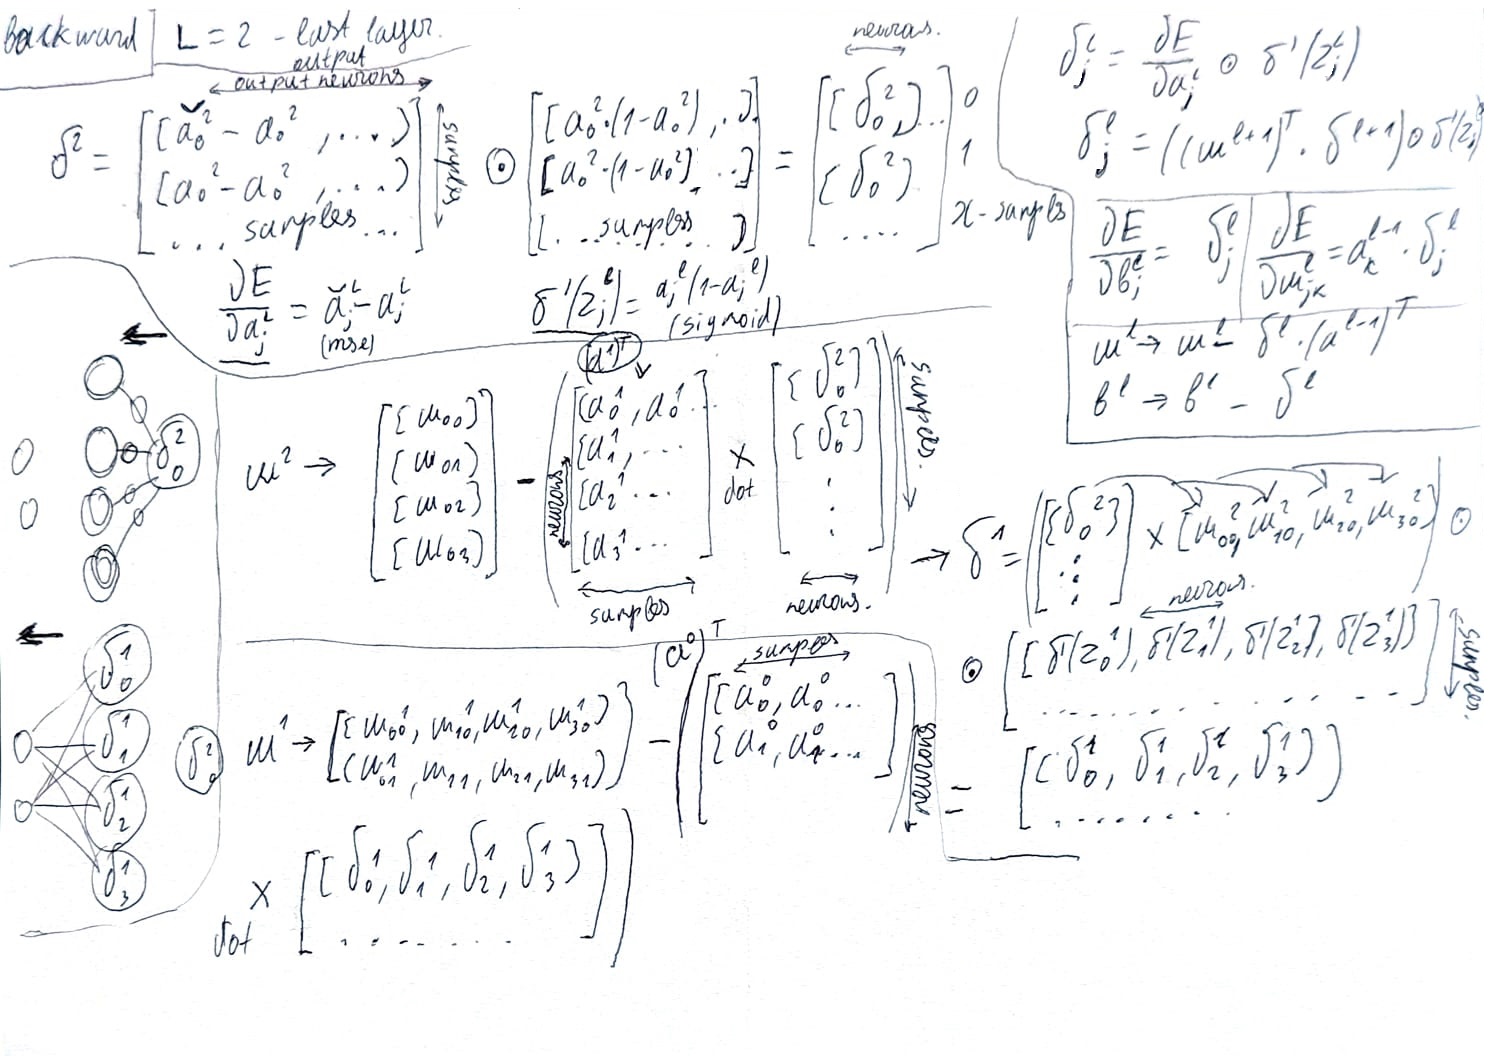 Backward
L = 2 - last layer.
output
output neurons
δ² = [[ǎ₀² - a₀² , ....)
[a₀² - a₀² , ....)
... samples ...]
samples
⊙ [[a₀²·(1-a₀²), .].
[a₀²·(1-a₀²), ..]
[... samples ... ]]
= [[δ₀², )...
[δ₀²)
....]
neurons.
0
1
x - samples
∂E/∂aⱼᴸ = ǎⱼᴸ - aⱼᴸ
(mse)
δ'(zⱼˡ) = aⱼˡ(1-aⱼˡ)
(sigmoid)
δⱼᴸ = ∂E/∂aⱼᴸ ⊙ δ'(zⱼᴸ)
δⱼˡ = ((wˡ⁺¹)ᵀ · δˡ⁺¹) ⊙ δ'(zⱼˡ)
∂E/∂bⱼˡ = δⱼˡ | ∂E/∂wⱼₖ = aₖˡ⁻¹ · δⱼˡ
wˡ → wˡ - δˡ · (aˡ⁻¹)ᵀ
bˡ → bˡ - δˡ
δ₀²
w² →
[[w₀₀)
[w₀₁)
[w₀₂)
[w₀₃)]
-
(a¹)ᵀ
([(a₀¹, a₀¹...
[a₁¹, ...
[a₂¹ ...
[a₃¹ ...]
neurons
samples
x
dot
[[δ₀²)
[δ₀²)
.
.
.])
neurons.
samples.
→ δ¹ = ([[δ₀²]
⋮] x [w₀₀², w₁₀², w₂₀², w₃₀²]) ⊙
neurons.
⊙ [[δ'(z₀¹), δ'(z₁¹), δ'(z₂¹), δ'(z₃¹)]
. . . . . . . .]
samples.
= [(δ₀¹, δ₁¹, δ₂¹, δ₃¹)
. . . . . . .]
δ₀¹
δ₁¹
δ₂¹
δ₃¹
δ₀²
w¹ → [[w₀₀¹, w₁₀¹, w₂₀¹, w₃₀¹)
(w₀₁¹, w₁₁, w₂₁, w₃₁)]
-
(a⁰)ᵀ
samples
([[a₀⁰, a₀⁰...
[a₁⁰, a₁⁰...]
neurons
x
dot
[[δ₀¹, δ₁¹, δ₂¹, δ₃¹)
. . . . . .])